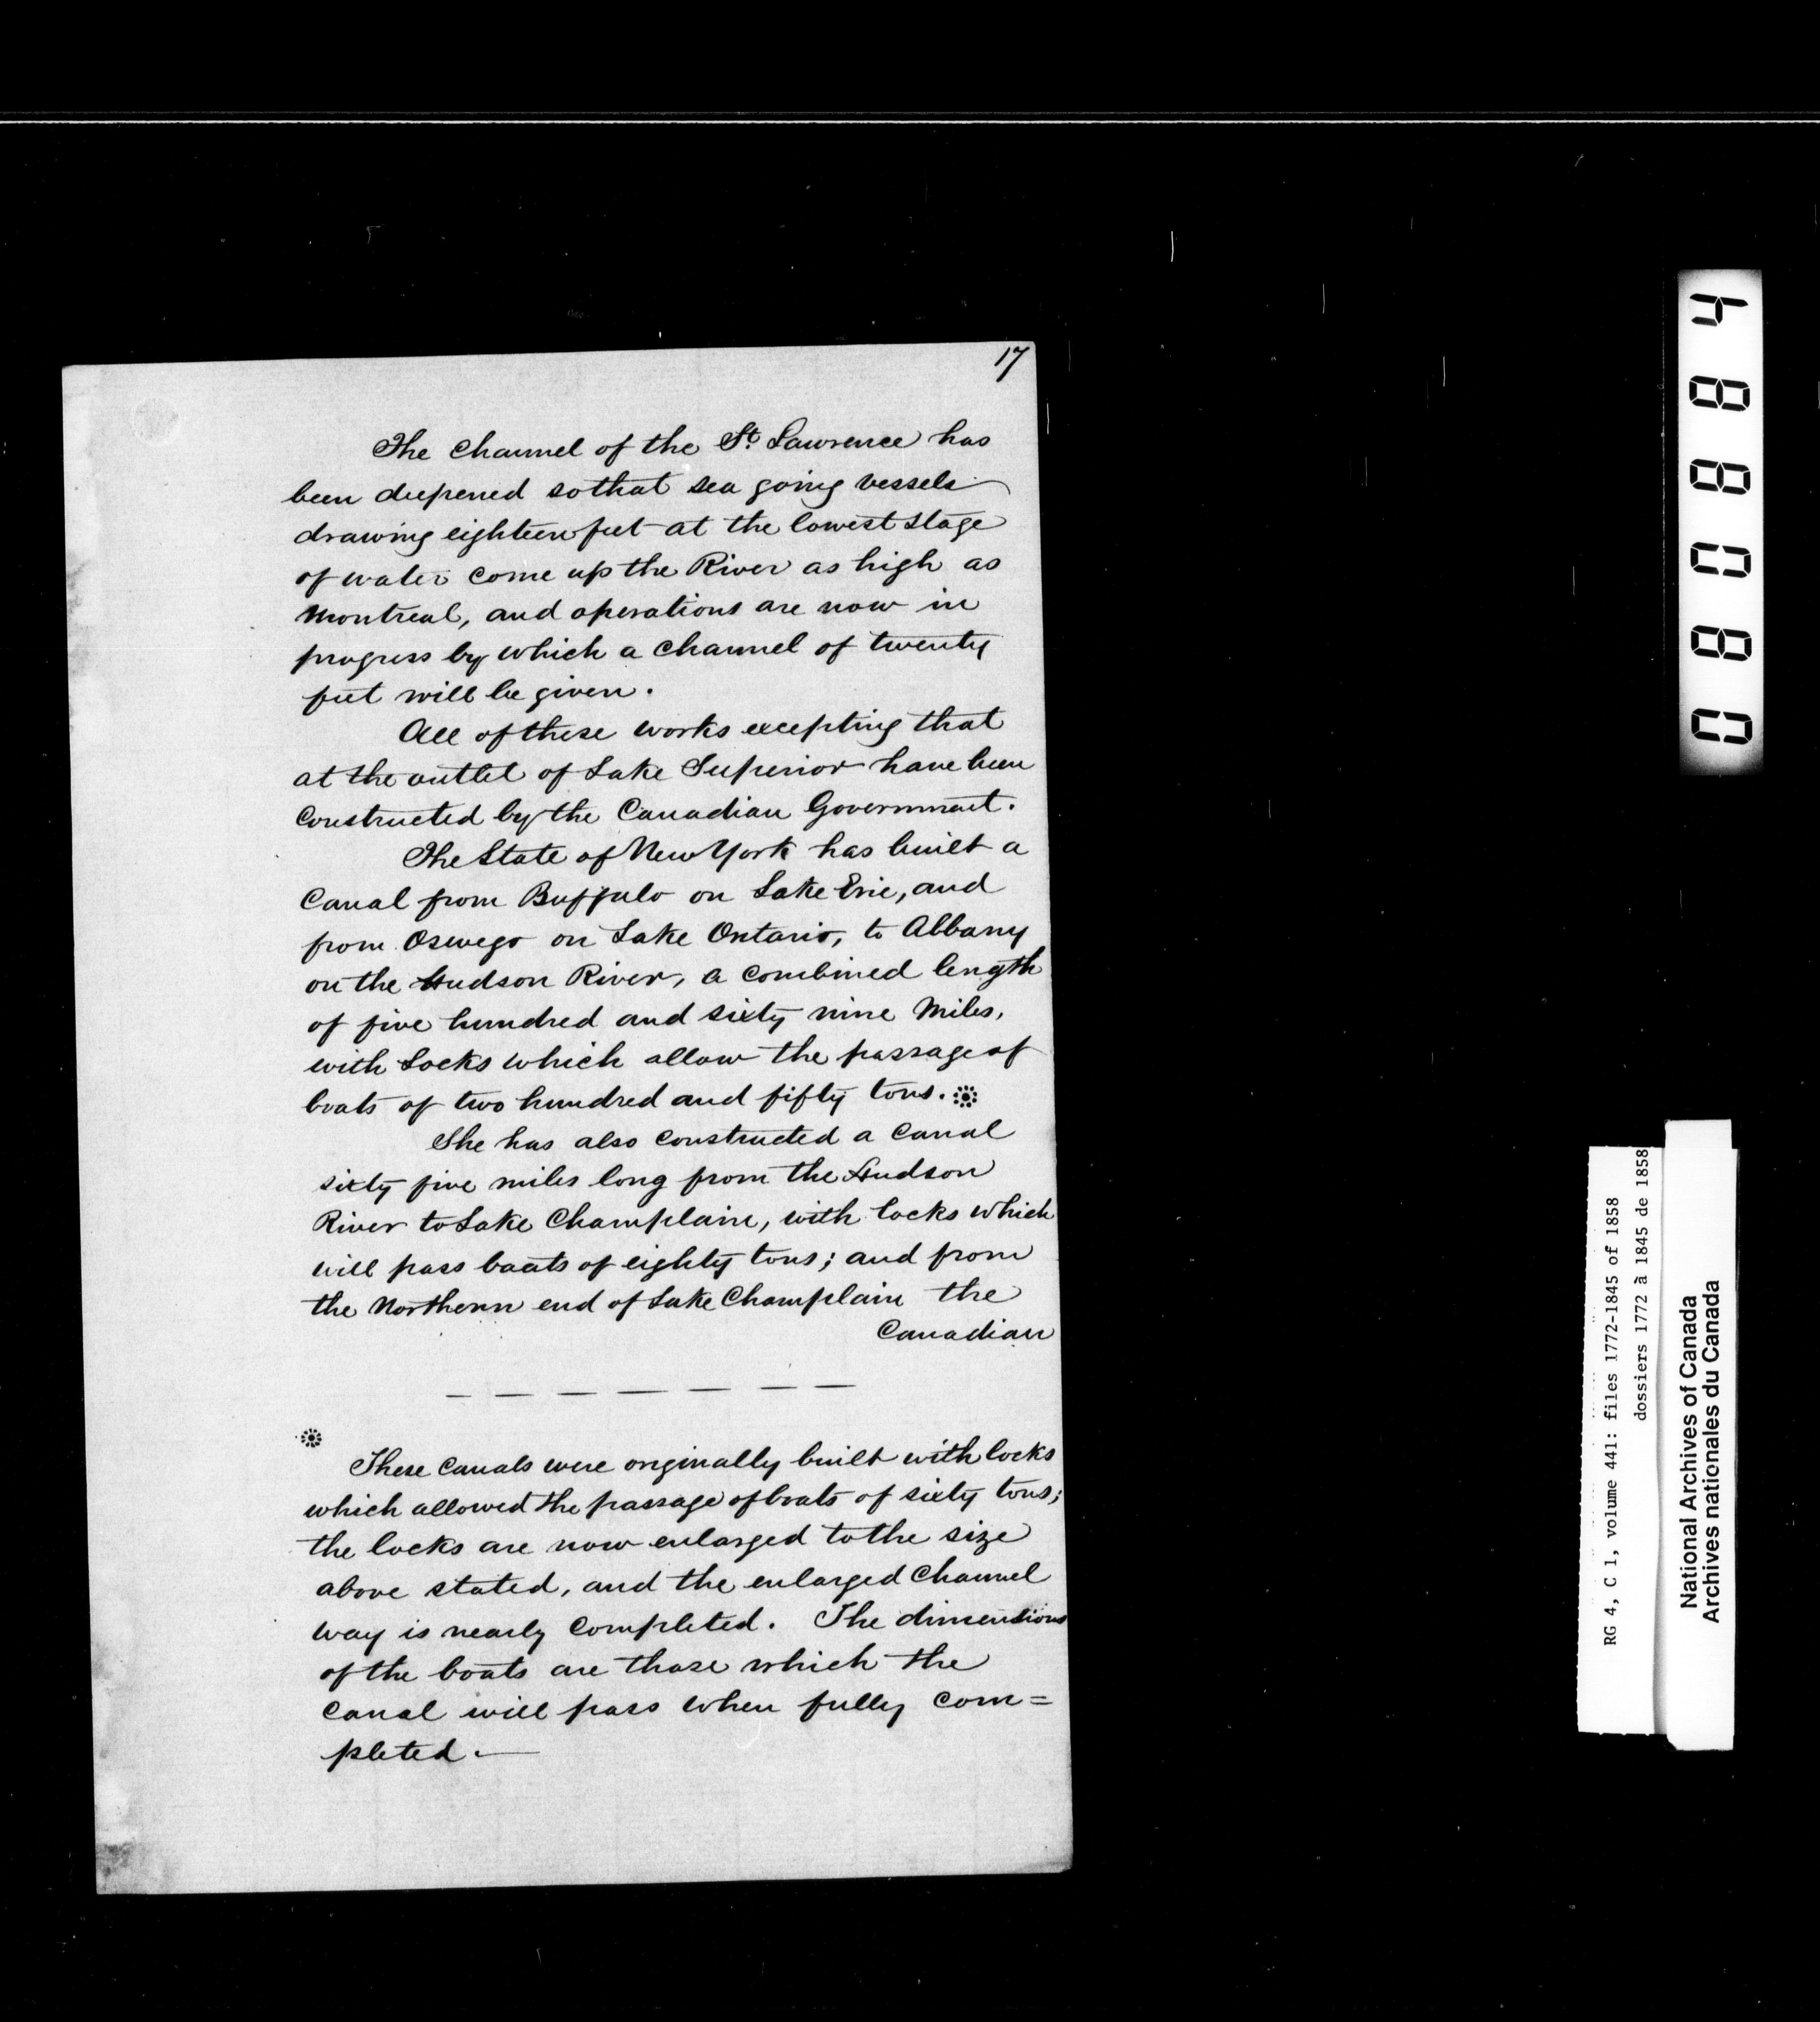 17
The Channel of the St. Lawrence has
been deepened so that sea going vessels
drawing eighteen feet at the lowest stage
of water come up the River as high as
Montreal, and operations are now in
progress by which a channel of twenty
feet will be given.
All of these works excepting that
at the outlet of Lake Superior have been
Constructed by the Canadian Government.
The State of New York has built a
Canal from Buffalo on Lake Erie, and
from Oswego on Lake Ontario, to Albany
on the Hudson River, a combined length
of five hundred and sixty nine Miles,
with Locks which allow the passage of
boats of two hundred and fifty tons. ※
She has also constructed a Canal
sixty five miles long from the Hudson
River to Lake Champlain, with locks which
will pass boats of eighty tons; and from
the Northern end of Lake Champlain the
Canadian
※
These Canals were originally built with locks
which allowed the passage of boats of sixty tons;
the locks are now enlarged to the size
above stated, and the enlarged Channel
way is nearly Completed. The dimensions
of the boats are those which the
Canal will pass when fully com=
pleted.—
088084
RG 4, C 1, volume 441: files 1772-1845 of 1858
dossiers 1772 à 1845 de 1858
National Archives of Canada
Archives nationales du Canada